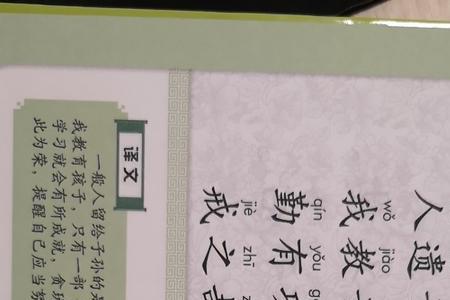 人遗
wǒ jiào
我教
qín yǒu
勤有
jiè zhī
戒之
译文
一般人留给子孙的是
我教育孩子，只有一部
学习就会有所成就，贪玩
此为荣，提醒自己应当努